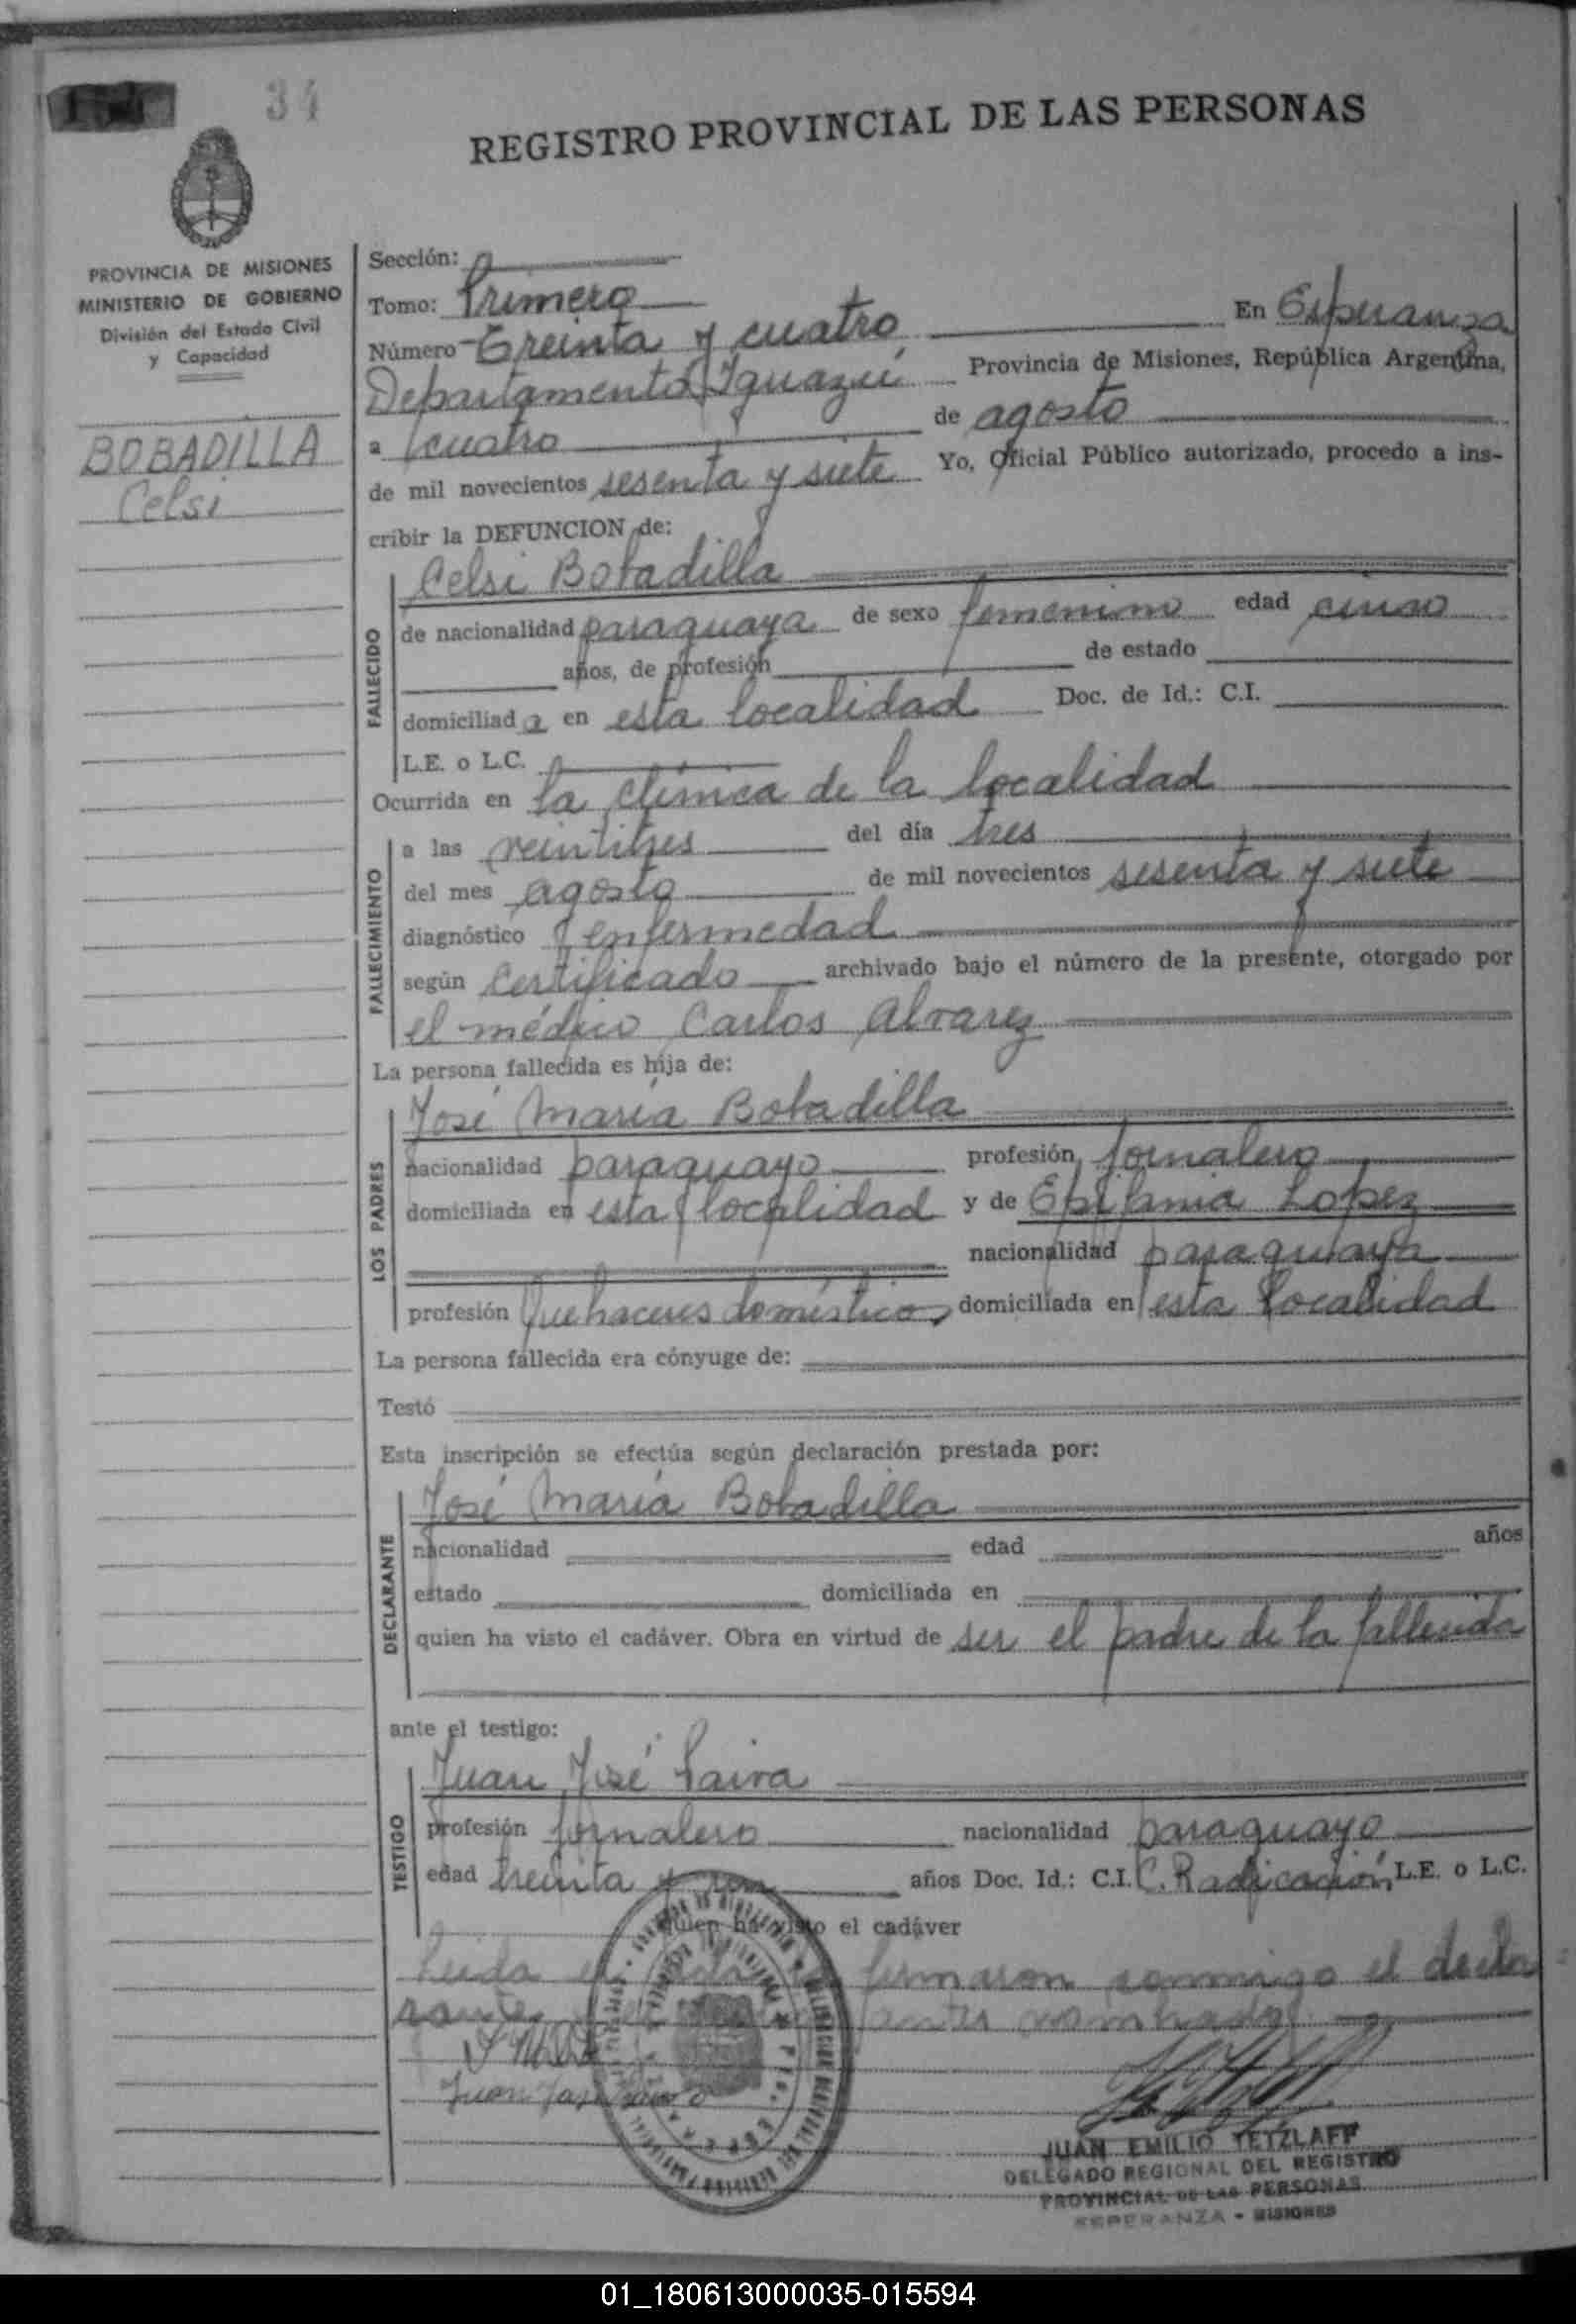 34
REGISTRO PROVINCIAL DE LAS PERSONAS
PROVINCIA DE MISIONES
MINISTERIO DE GOBIERNO
División del Estado Civil
y Capacidad
BOBADILLA
Celsi
Sección:
Tomo: Primero
Número Treinta y cuatro En Esperanza
Departamento Iguazú Provincia de Misiones, República Argentina,
a cuatro de agosto
de mil novecientos sesenta y siete Yo, Oficial Público autorizado, procedo a ins-
cribir la DEFUNCION de:
FALLECIDO
Celsi Bobadilla
de nacionalidad paraguaya de sexo femenino edad cinco
años, de profesión de estado
domiciliad a en esta localidad Doc. de Id.: C.I.
L.E. o L.C.
Ocurrida en la clínica de la localidad
FALLECIMIENTO
a las veintitres del día tres
del mes agosto de mil novecientos sesenta y siete
diagnóstico enfermedad
según certificado archivado bajo el número de la presente, otorgado por
el médico Carlos Alvarez
La persona fallecida es hija de:
LOS PADRES
José María Bobadilla
nacionalidad paraguayo profesión jornalero
domiciliada en esta localidad y de Epifania Lopez
nacionalidad paraguaya
profesión Quehaceres domésticos domiciliada en esta localidad
La persona fallecida era cónyuge de:
Testó
Esta inscripción se efectúa según declaración prestada por:
DECLARANTE
José María Bobadilla
nacionalidad edad años
estado domiciliada en
quien ha visto el cadáver. Obra en virtud de ser el padre de la fallecida
ante el testigo:
TESTIGO
Juan José Paiva
profesión jornalero nacionalidad paraguayo
edad treinta y un años Doc. Id.: C.I. C. Radicación L.E. o L.C.
quien ha visto el cadáver
Leida el acta firmaron conmigo el decla
rante antes nombrados
Juan José
JUAN EMILIO TETZLAFF
DELEGADO REGIONAL DEL REGISTRO
PROVINCIAL DE LAS PERSONAS
ESPERANZA - MISIONES
01_180613000035-015594